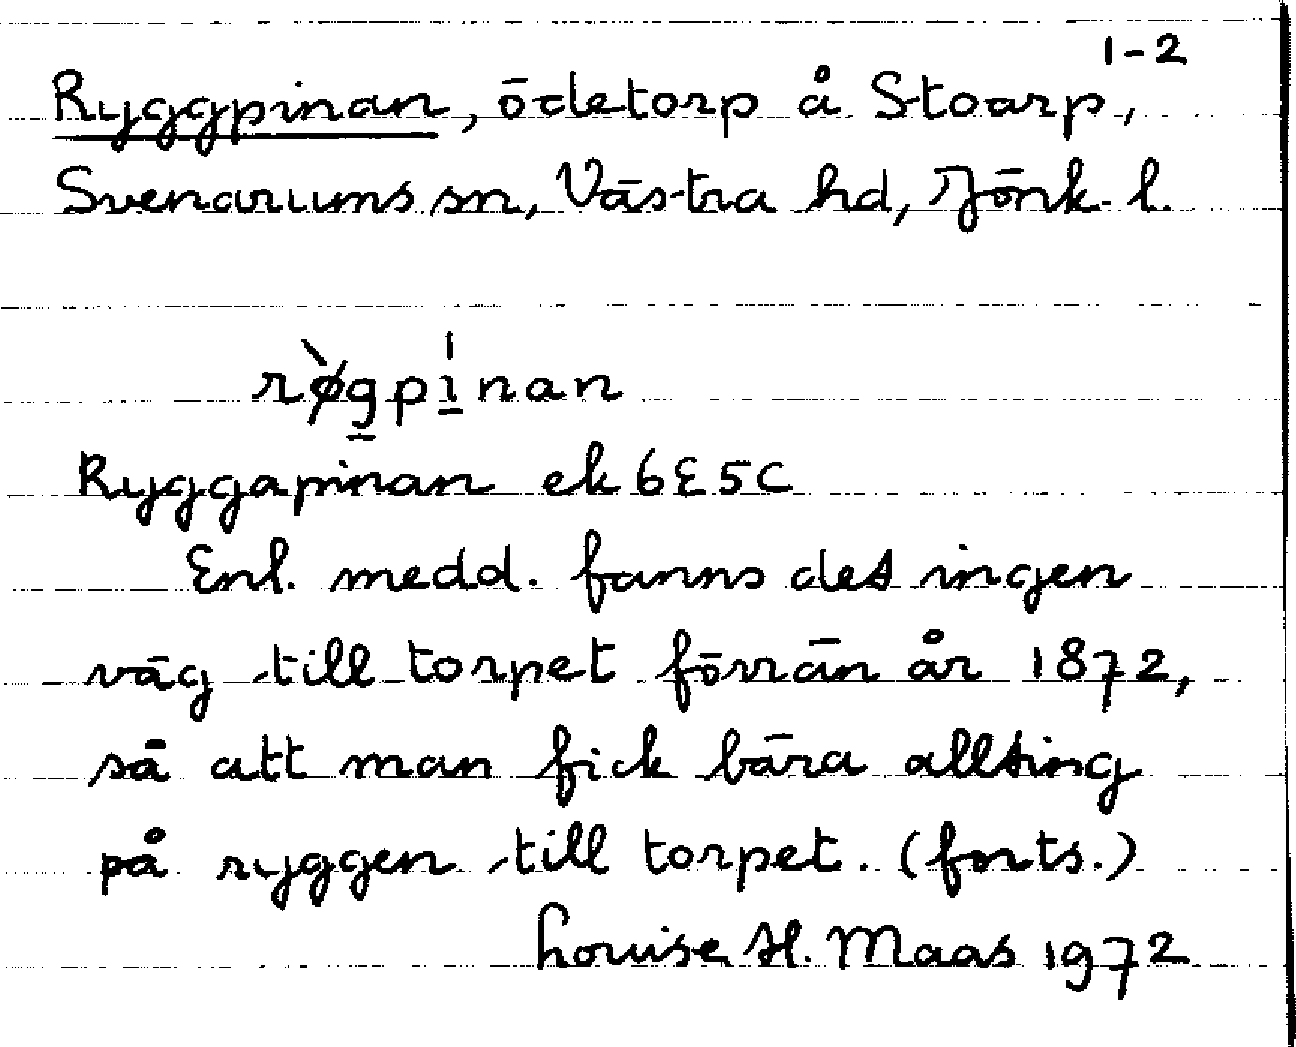 1-2
Ryggpinan, ödetorp å Stoarp,
Svenarums sn, Västra hd, Jönk. l.
rø̀g̱pı̱́nan
Ryggapinan ek 6E5C
Enl. medd. fanns det ingen
väg till torpet förrän år 1872,
så att man fick bära allting
på ryggen till torpet. (forts.)
Louise H. Maas 1972